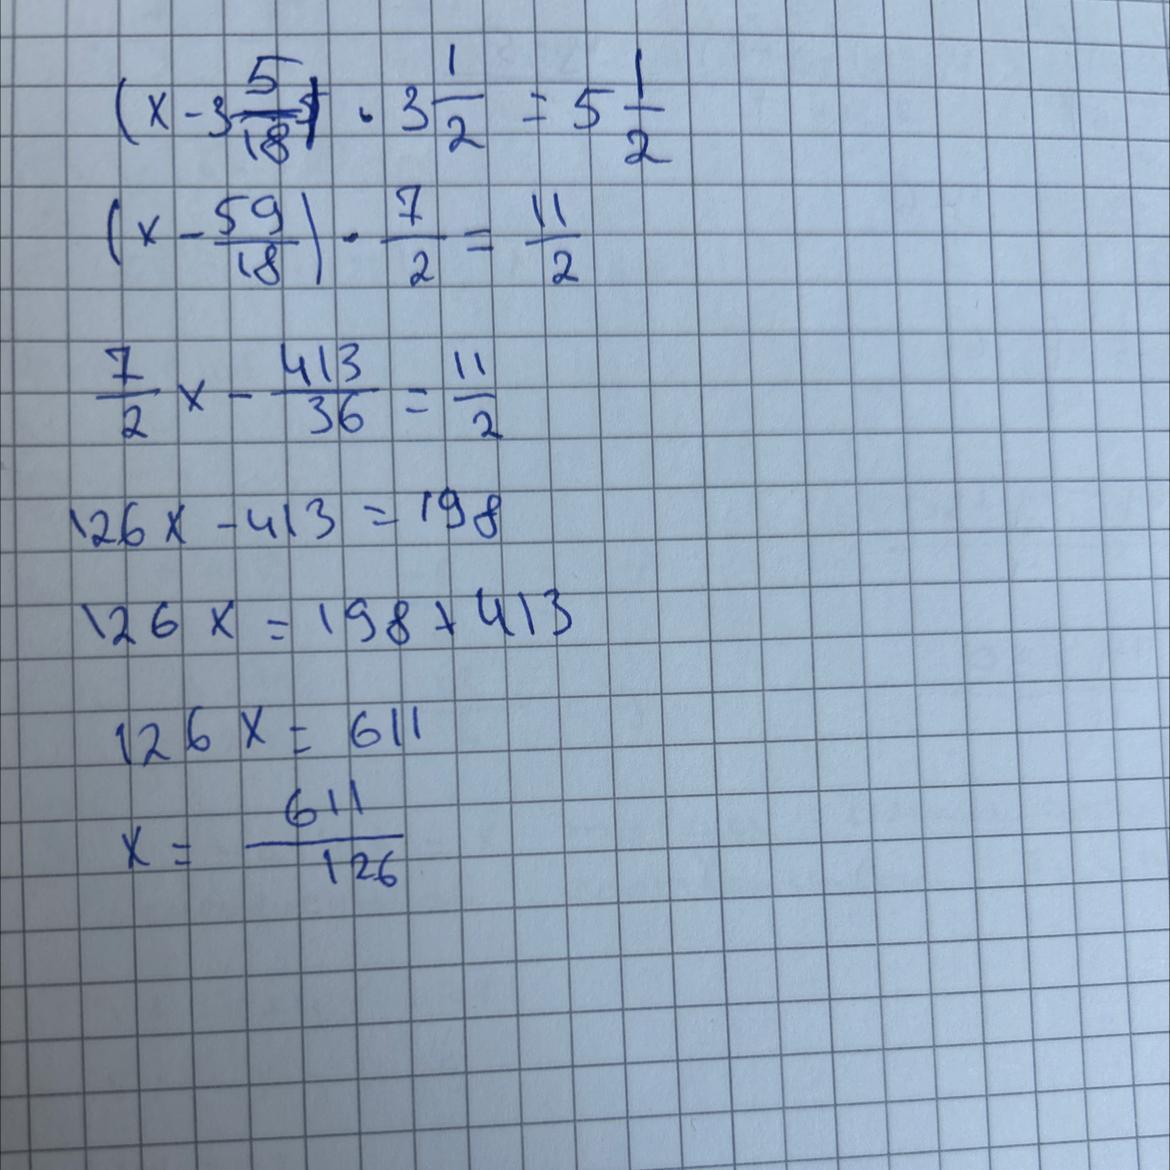 (x - 3 5/18) · 3 1/2 = 5 1/2
(x - 59/18) · 7/2 = 11/2
7/2 x - 413/36 = 11/2
126x - 413 = 198
126x = 198 + 413
126x = 611
x = 611/126